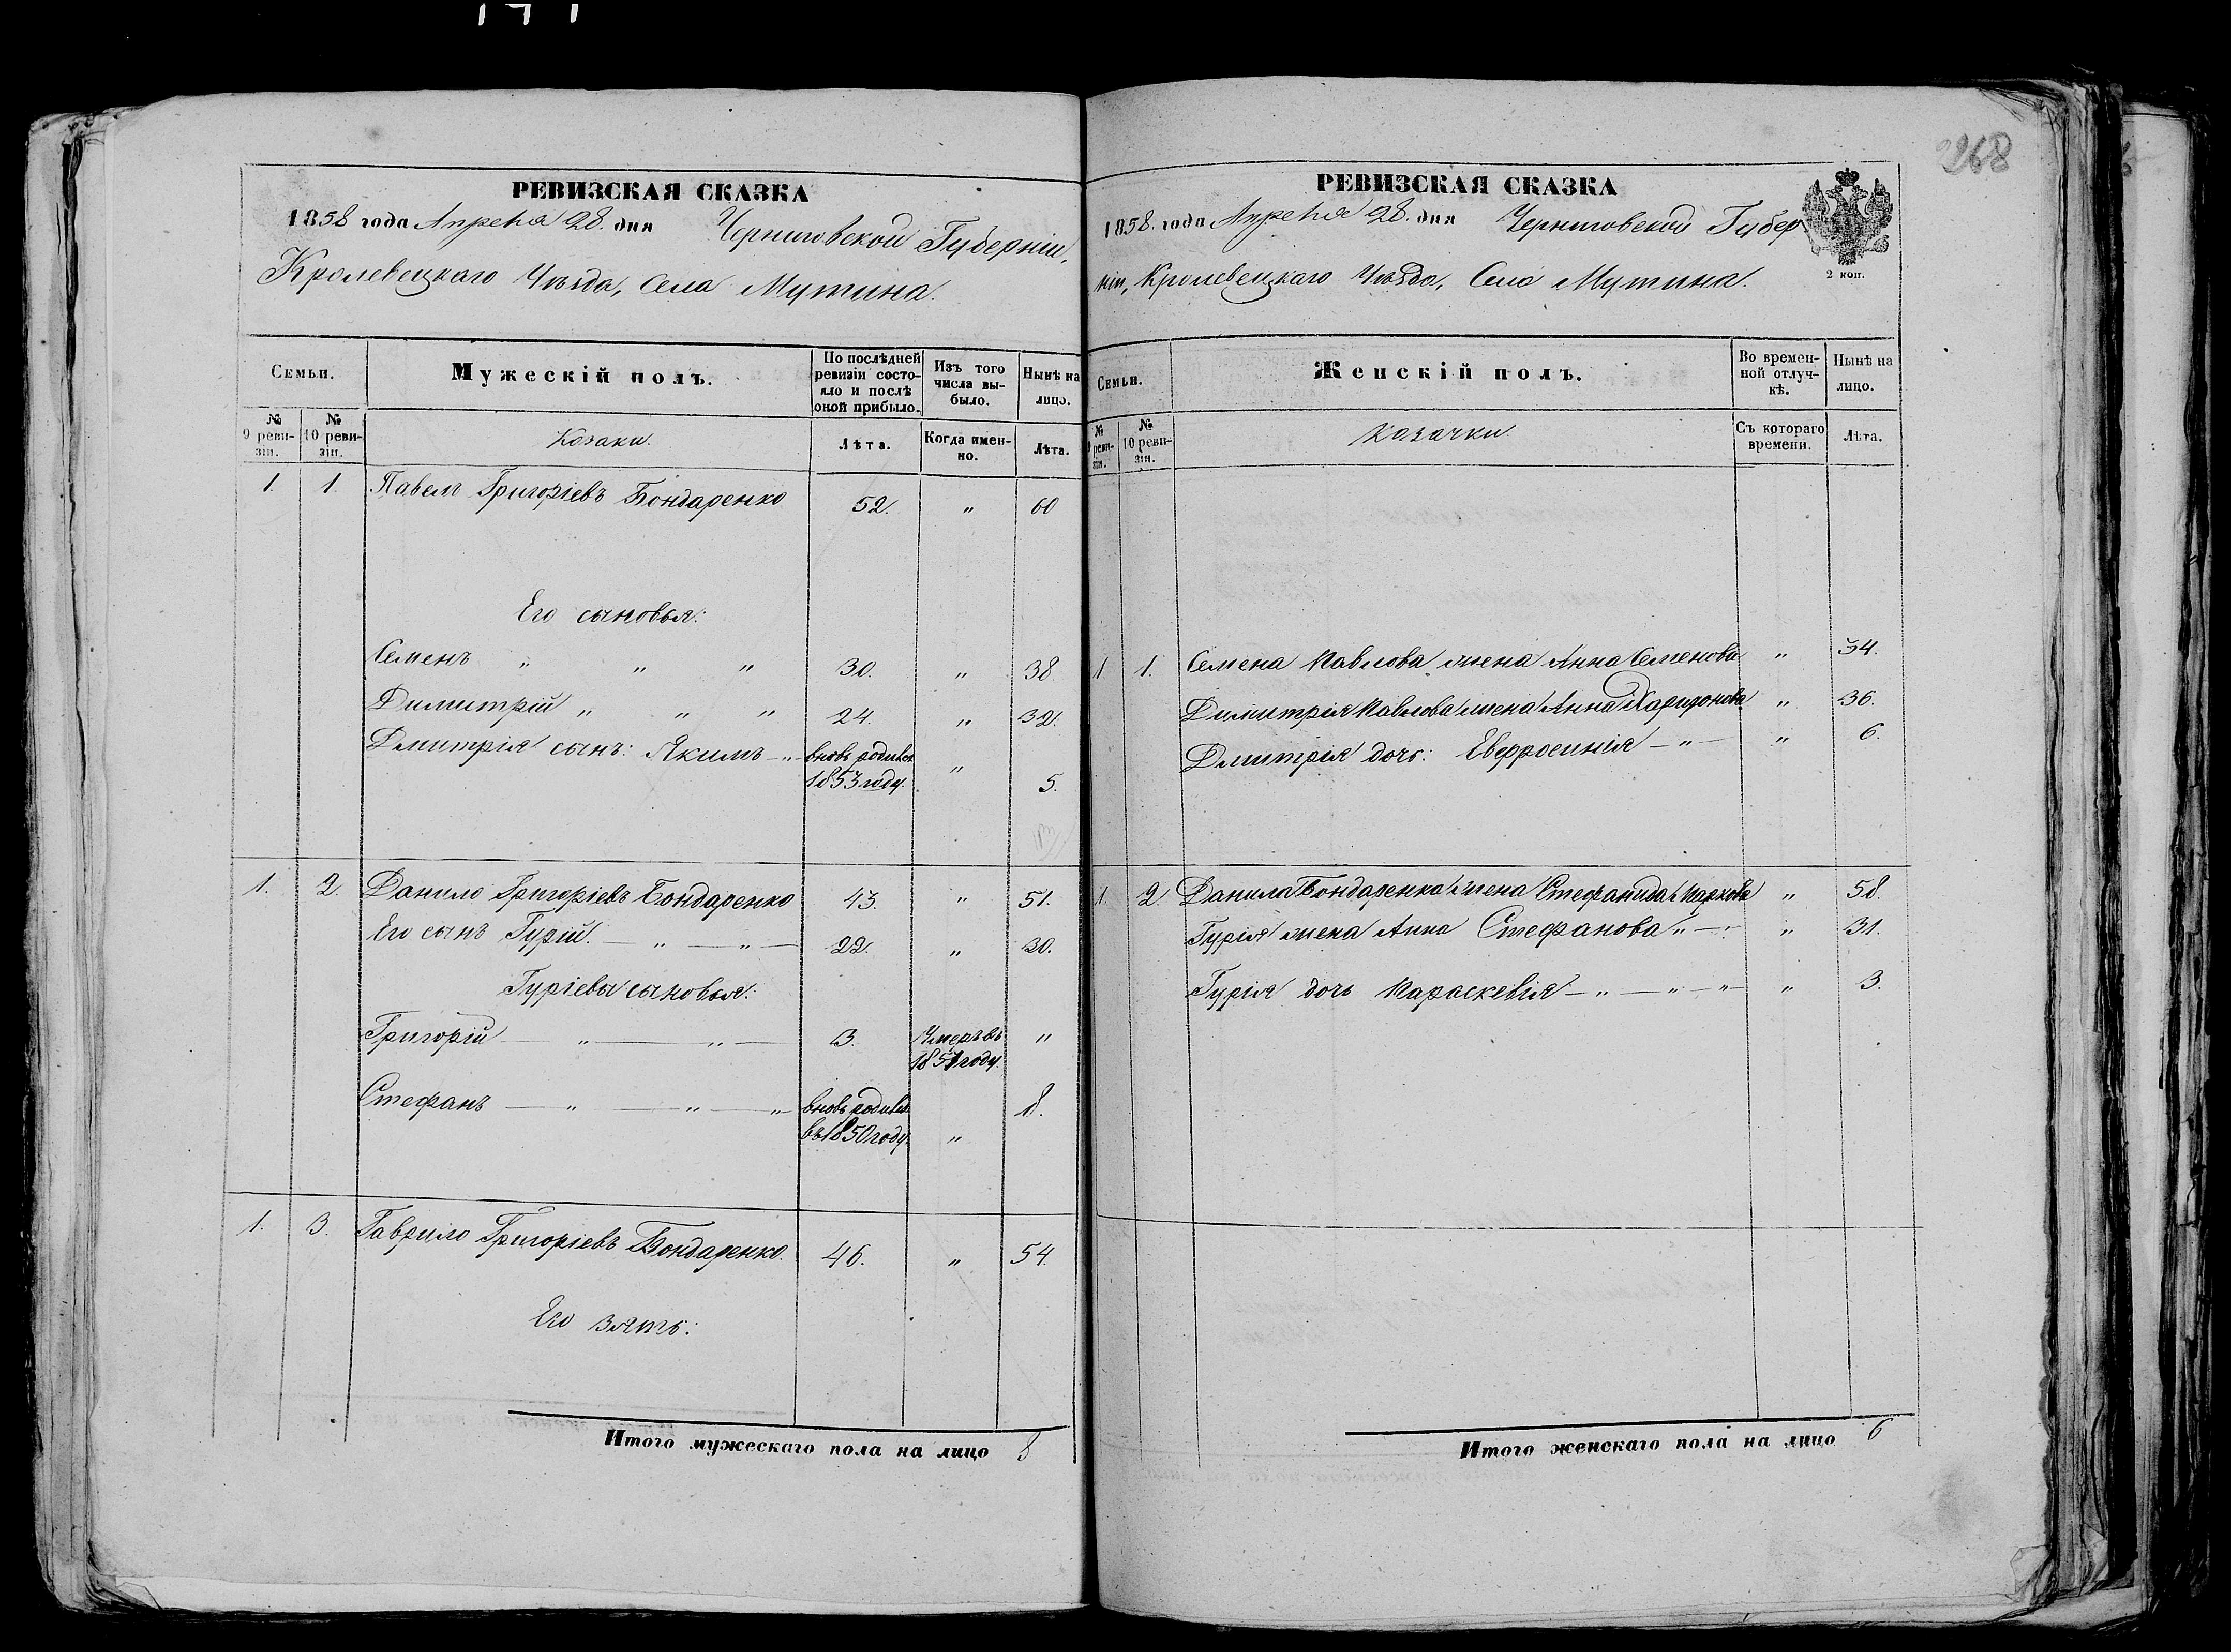 268
РЕВИЗСКАЯ СКАЗКА
1858 года Апреля 28. дня Черниговской Губерніи,
Кролевецкаго Уѣзда, Села Мутина.
Семьи.
Мужескій полъ.
По послѣдней ревизіи состояло и послѣ оной прибыло.
Изъ того числа выбыло.
Нынѣ на лицо.
№ 9 ревизіи.
№ 10 ревизіи.
Козаки.
Лѣта.
Когда именно.
Лѣта.
1. 1. Павелъ Григоріевъ Бондаренко 52. " 60
Его сыновья:
Семенъ " " " 30. " 38
Димитрій " " " 24. " 32.
Дмитрія сынъ: Якимъ — " вновь родился
1853 году. " 5.
1. 2. Данило Григоріевъ Бондаренко 43. " 51.
Его сынъ Гурій. — " — " — 22. " 30.
Гуріевы сыновья:
Григорій — " — " — 3. Умеръ въ "
1851 году.
Стефанъ — " — " — " вновь родился 8.
въ 1850 году. "
1. 3. Гаврило Григоріевъ Бондаренко. 46. " 54.
Его зять:
Итого мужескаго пола на лицо 8
РЕВИЗСКАЯ СКАЗКА
1858. года Апреля 28. дня Черниговской Губер
ніи, Кролевецкаго Уѣзда, Села Мутина.
2 коп.
Семьи.
Женскій полъ.
Во временной отлучкѣ.
Нынѣ на лицо.
№ 9 ревизіи.
№ 10 ревизіи.
Козачки.
Съ котораго времени.
Лѣта.
1 1. Семена Павлова жена Анна Семенова " 34.
Димитрія Павлова жена Анна Харитонова " 36.
Дмитрія дочь: Евфросинія — " — " 6.
1. 2 Данила Бондаренка жена Стефанида Маркова " 58.
Гурія жена Анна Стефанова " — " " 31.
Гурія дочь Параскевія — " — " — " " 3.
Итого женскаго пола на лицо 6